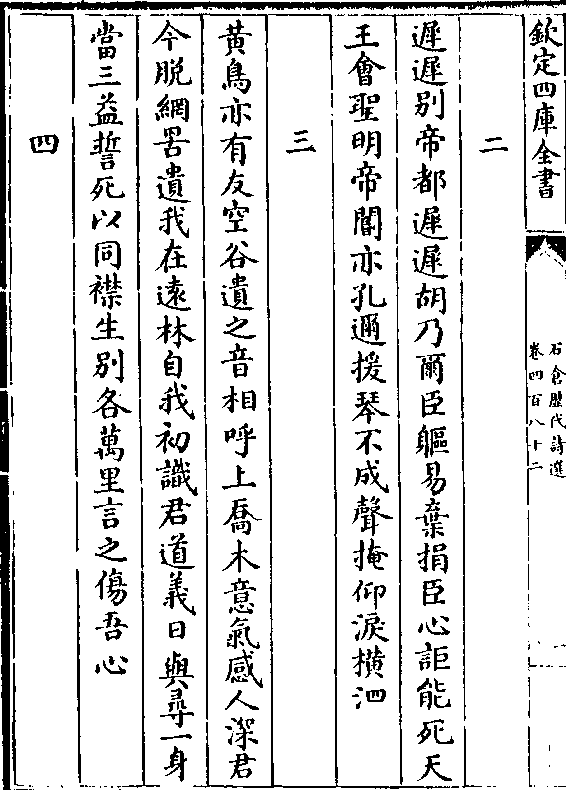 欽定四庫全書
石倉歷代詩選
卷四百八十二
二
遲遲别帝都遲遲胡乃爾臣軀易棄捐臣心詎能死天
王會聖明帝閽亦孔邇援琴不成聲掩仰淚横泗
三
黄鳥亦有友空谷遺之音相呼上喬木意氣感人深君
今脱網罟遺我在遠林自我初識君道義日與尋一身
當三益誓死以同襟生别各萬里言之傷吾心
四